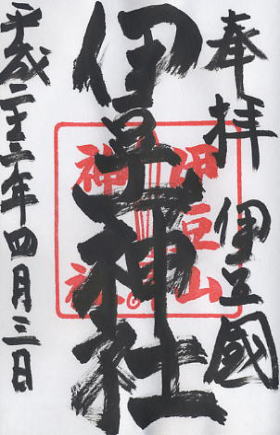 奉拝 伊豆國
伊豆山神社
平成二十三年四月三日
伊豆山
神社